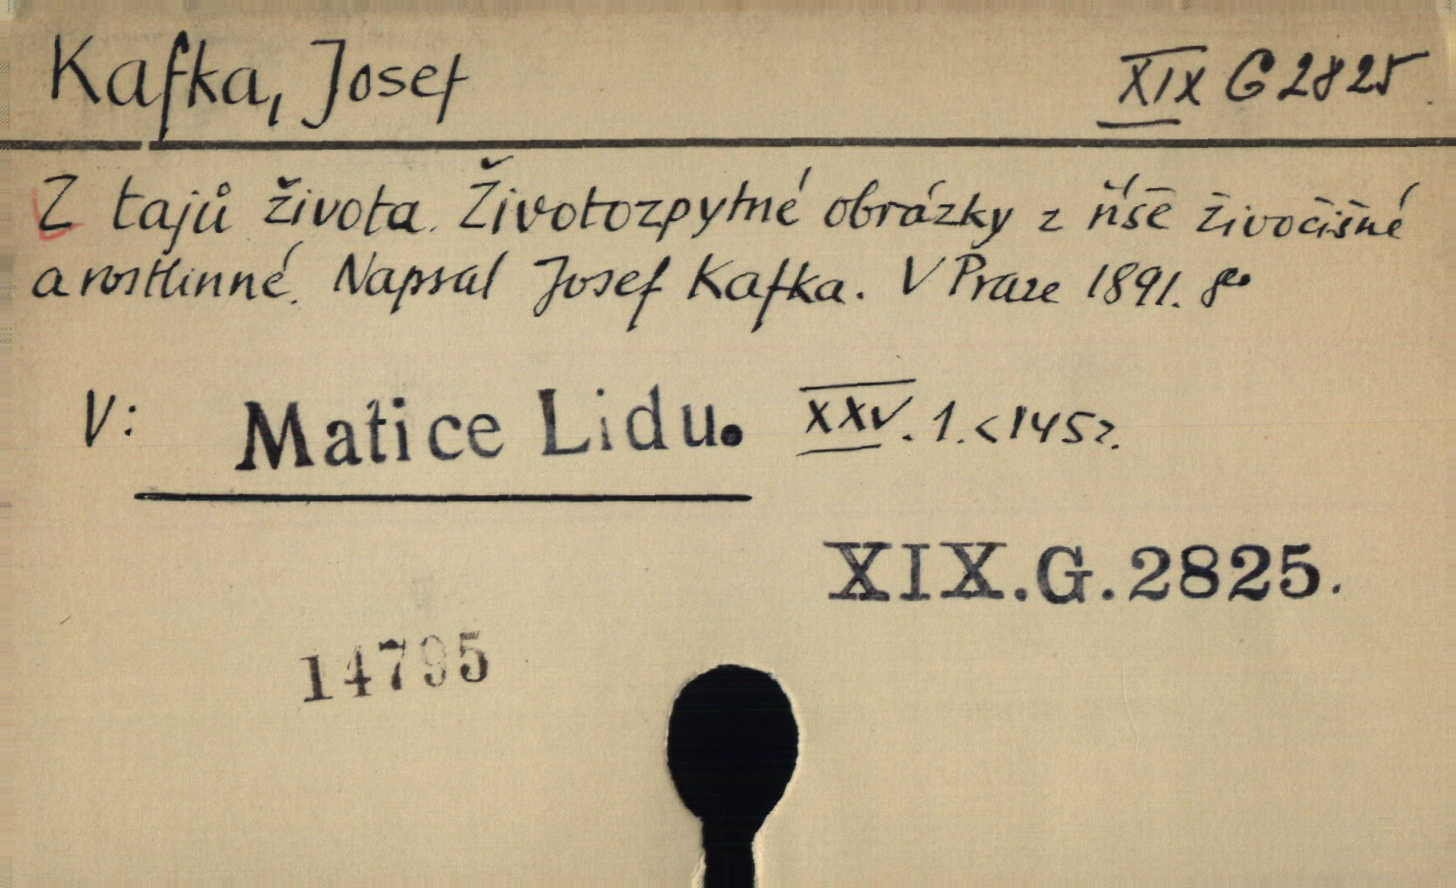 Kafka, Josef XIX G 2825.
Z tajů života. Životozpytné obrázky z říše živočišné
a rostlinné. Napsal Josef Kafka. V Praze 1891. 8o
V: Matice Lidu. XXV. 1. <145>.
XIX.G.2825.
14795